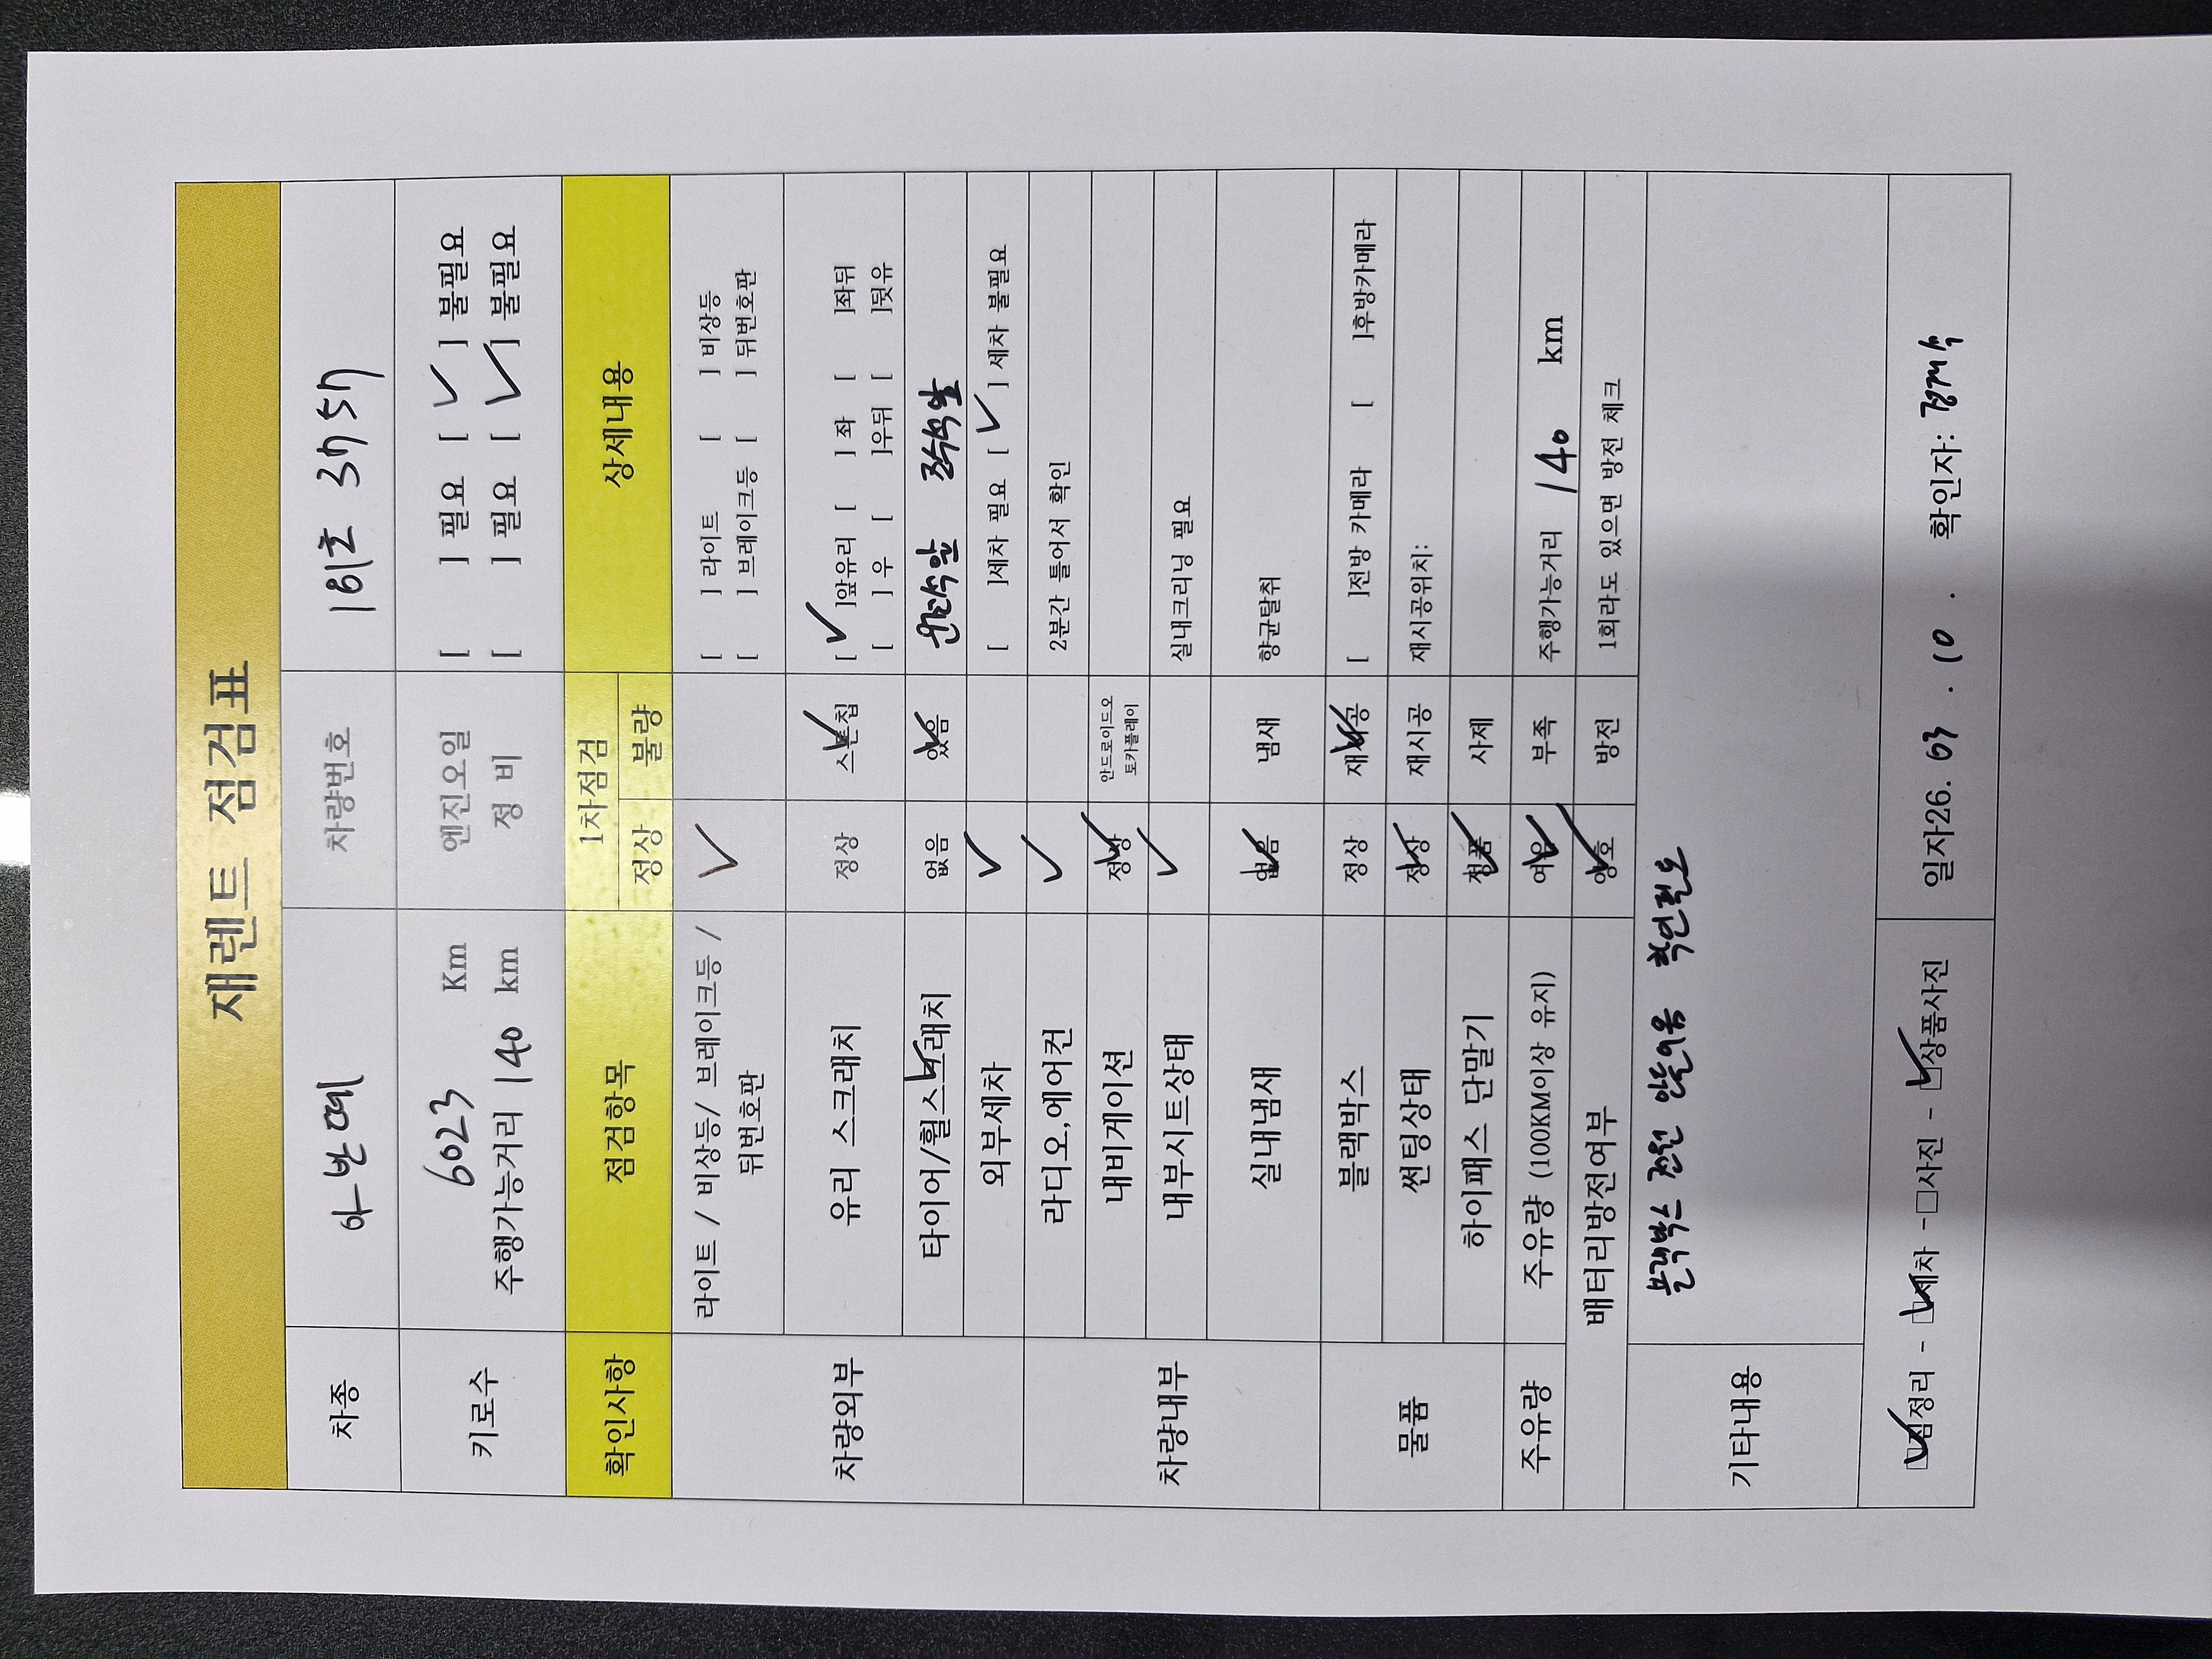 재렌트 점검표
차종 아반떼 차량번호 161호 3757
키로수 6023 Km 엔진오일 [ ] 필요 [ ✓ ] 불필요
주행가능거리 140 km 정 비 [ ] 필요 [ ✓ ] 불필요
확인사항 점검항목 1차점검 상세내용
정상 불량
차량외부 라이트 / 비상등/ 브레이크등 / ✓ [ ] 라이트 [ ] 비상등
뒤번호판 [ ] 브레이크등 [ ] 뒤번호판
유리 스크래치 정상 스톤칩 ✓ [ ✓ ]앞유리 [ ] 좌 [ ]좌뒤
[ ] 우 [ ]우뒤 [ ]뒷유
타이어/휠스크래치 ✓ 없음 있음 ✓ 운전석앞 조수석앞
외부세차 ✓ [ ]세차 필요 [ ✓ ] 세차 불필요
차량내부 라디오,에어컨 ✓ 2분간 틀어서 확인
내비게이션 정상 ✓ 안드로이드오
토카플레이
내부시트상태 ✓ 실내크리닝 필요
실내냄새 없음 ✓ 냄새 향균탈취
물품 블랙박스 정상 재시공 ✓ [ ]전방 카메라 [ ]후방카메라
썬팅상태 정상 ✓ 재시공 재시공위치:
하이패스 단말기 정품 ✓ 사제
주유량 주유량 (100KM이상 유지) 여유 ✓ 부족 주행가능거리 140 km
배터리방전여부 양호 ✓ 방전 1회라도 있으면 방전 체크
기타내용 블랙박스 전원 안들어옴 확인필요
☑점정리 - ☑세차 - □사진 - ☑상품사진 일자26. 03 . 10 . 확인자: